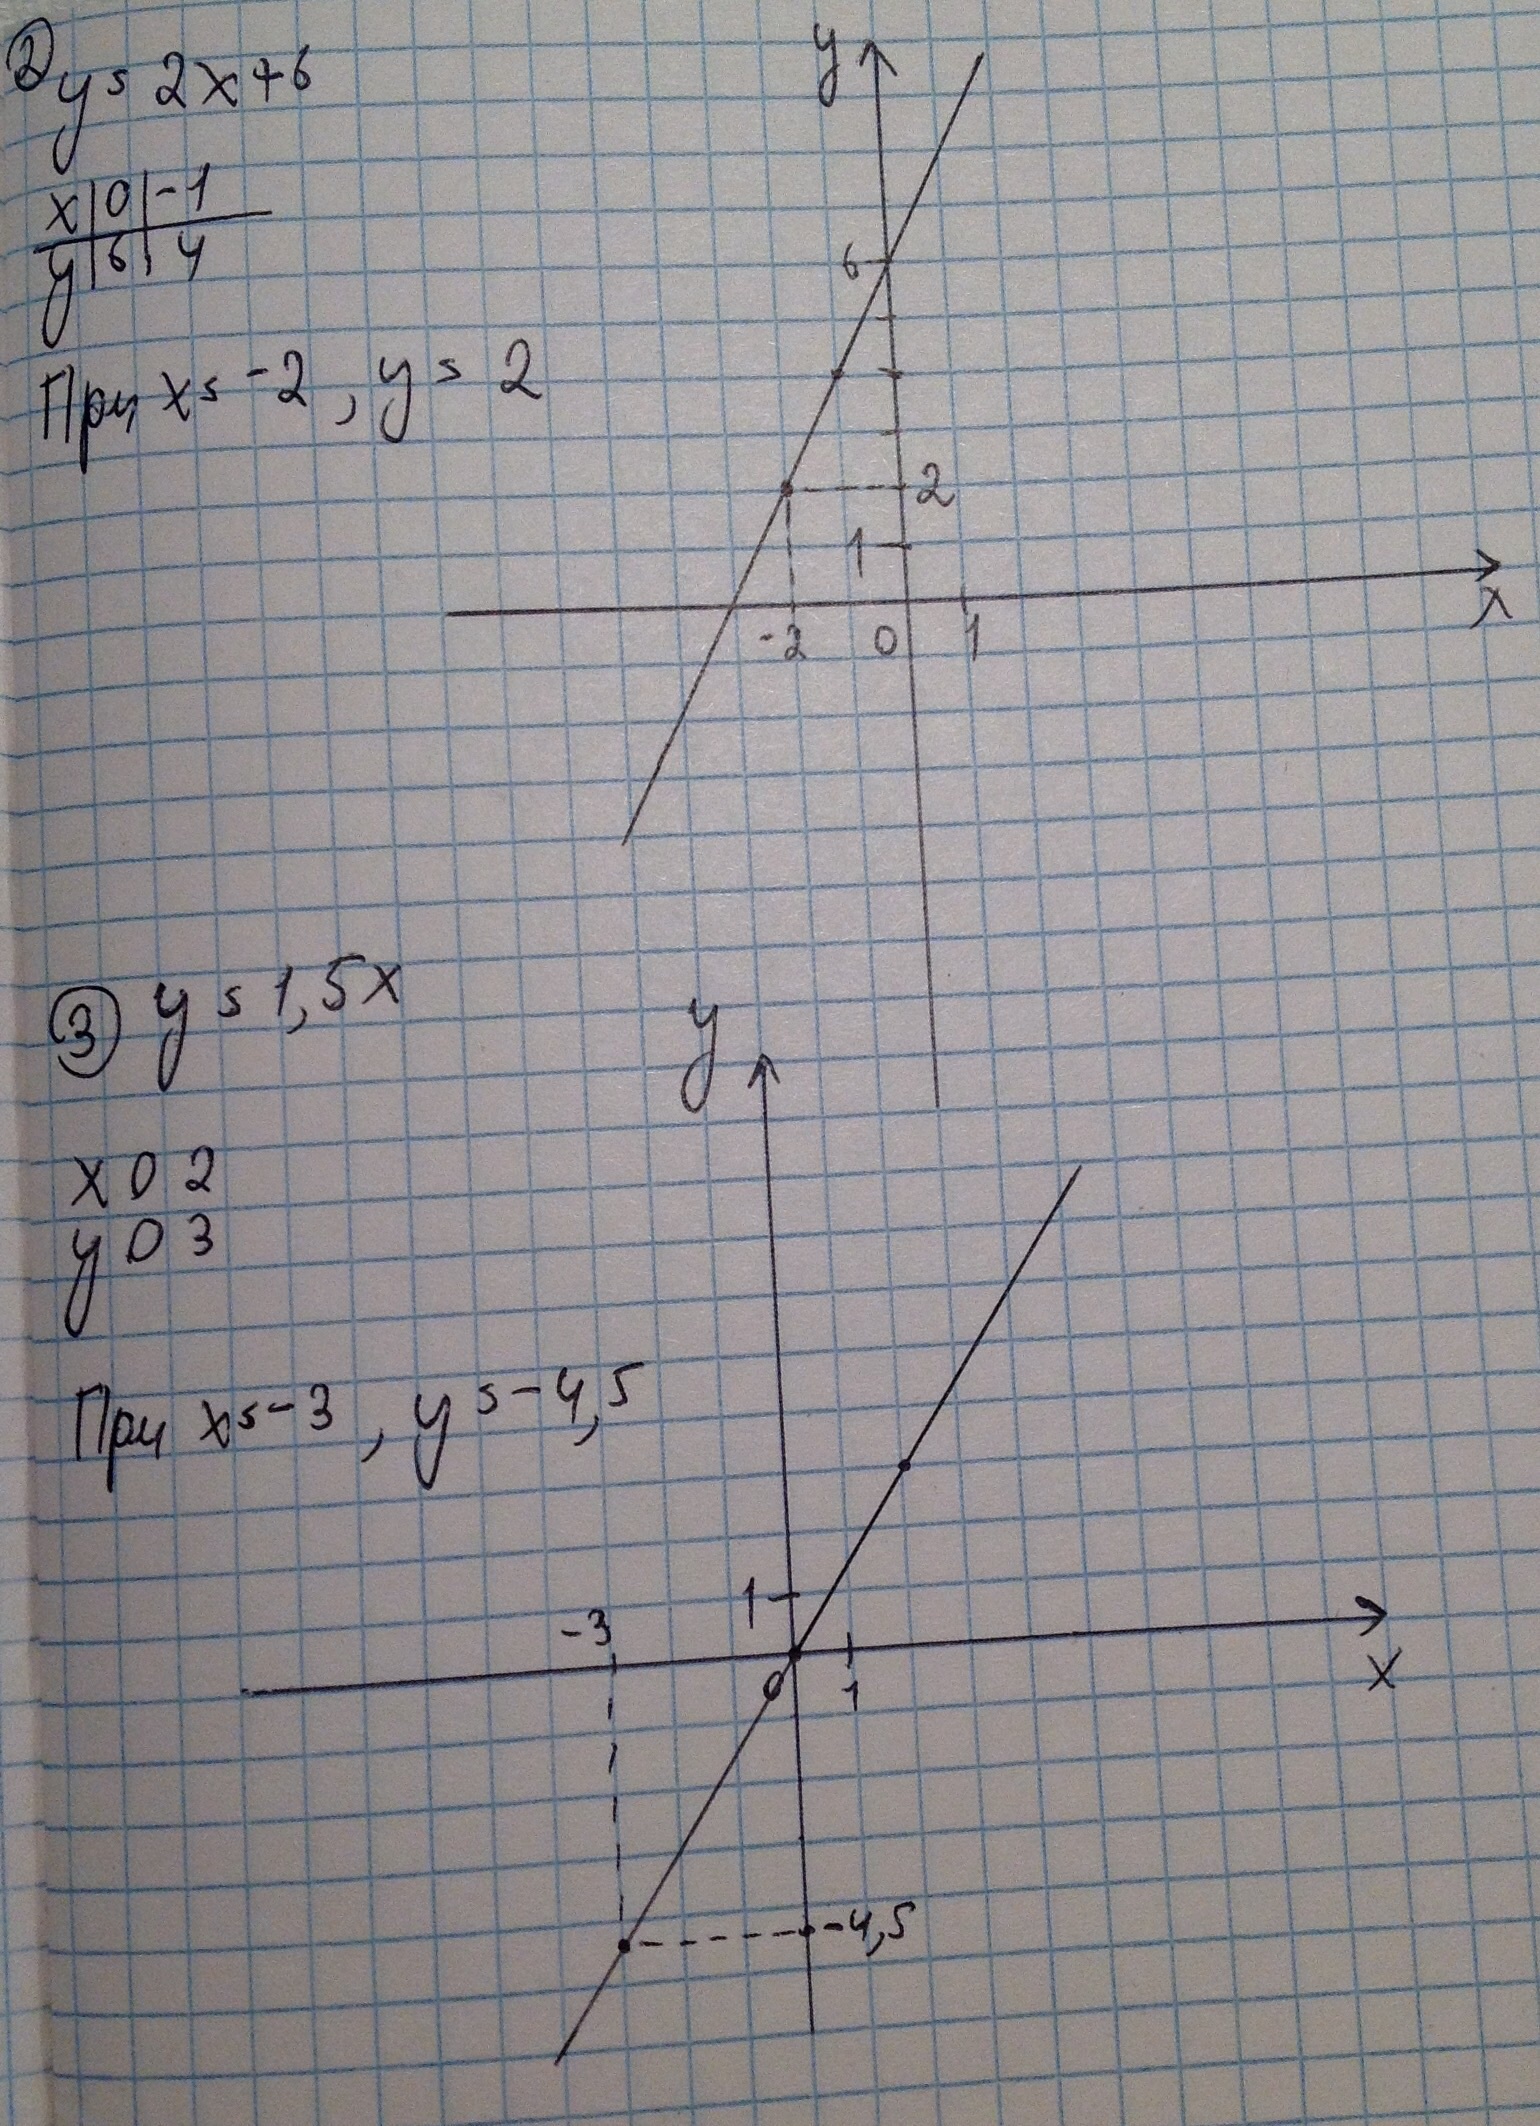 2 y = 2x+6
x | 0 | -1
y | 6 | 4
При x = -2, y = 2
y
6
2
1
-2 0 1
x
3 y = 1,5x
x 0 2
y 0 3
При x = -3, y = -4,5
y
1
-3
0 1
x
-4,5